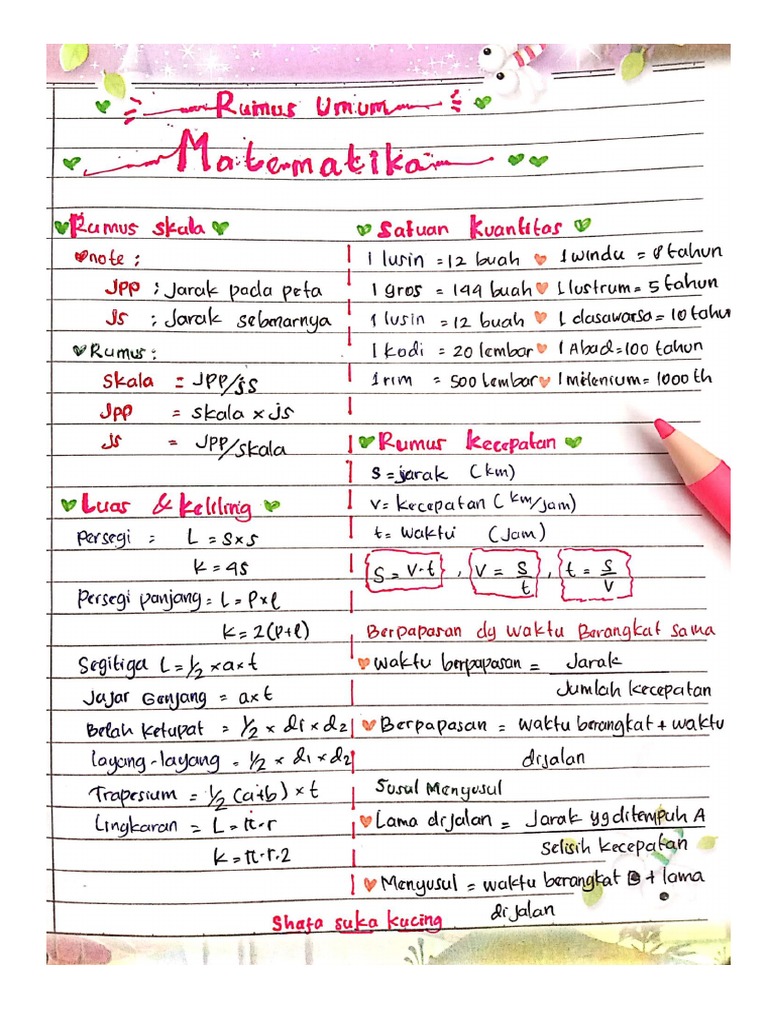 Rumus Umum
Matematika
Rumus Skala
note :
JPP : Jarak pada peta
Js : Jarak sebenarnya
Rumus :
Skala = JPP/js
JPP = skala x js
Js = JPP/skala
Luas & Keliling
Persegi : L = s x s
K = 4s
Persegi panjang = L = P x l
K = 2(P+l)
Segitiga L = 1/2 x a x t
Jajar Genjang = a x t
Belah Ketupat = 1/2 x d1 x d2
layang-layang = 1/2 x d1 x d2
Trapesium = 1/2 (a+b) x t
Lingkaran = L = π.r
K = π.r.2
Satuan Kuantitas
1 lusin = 12 buah 1 windu = 8 tahun
1 gros = 144 buah 1 lustrum = 5 tahun
1 lusin = 12 buah 1 dasawarsa = 10 tahun
1 kodi = 20 lembar 1 Abad = 100 tahun
1 rim = 500 Lembar 1 milenium = 1000 th
Rumus Kecepatan
s = jarak (km)
v = kecepatan (km/jam)
t = waktu (Jam)
S = V.t , V = s/t , t = s/v
Berpapasan dg waktu Berangkat sama
Waktu berpapasan = Jarak
Jumlah kecepatan
Berpapasan = waktu berangkat + waktu
dijalan
Susul Menyusul
Lama dijalan = Jarak yg ditempuh A
selisih kecepatan
Menyusul = waktu berangkat B + lama
dijalan
Shafa suka kucing